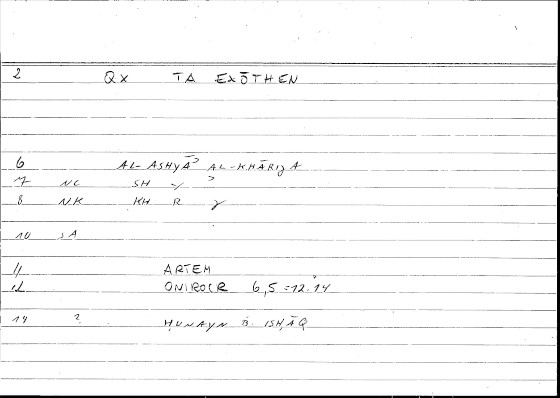 2 QX TA EXŌTHEN
6 AL-ASHYĀʾ AL-KHĀRIJA
7 NC SH Y ʾ
8 NK KH R J
10 SA
11 ARTEM
12 ONIROCR 6,5 = 12.14
14 ? ḤUNAYN B. ISḤĀQ